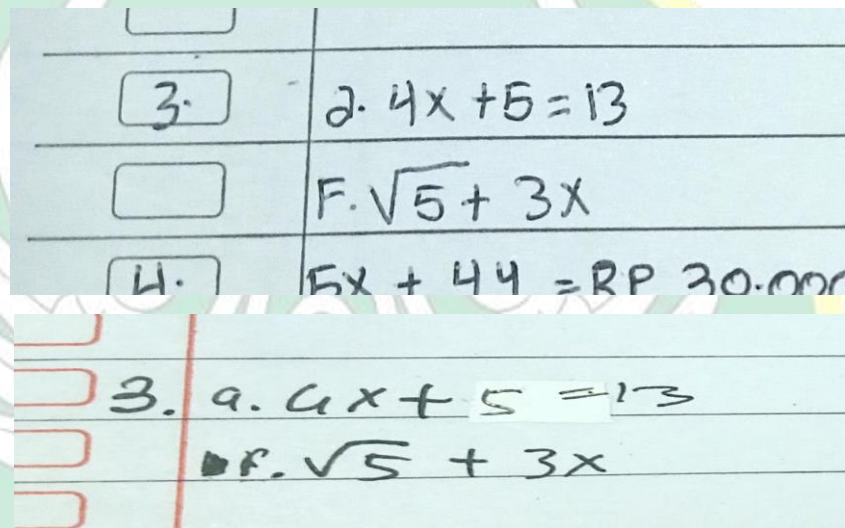 3. a. 4x + 5 = 13
F. √5 + 3x
4. 5x + 4y = RP 30.000
3. a. 4x + 5 = 13
F. √5 + 3x